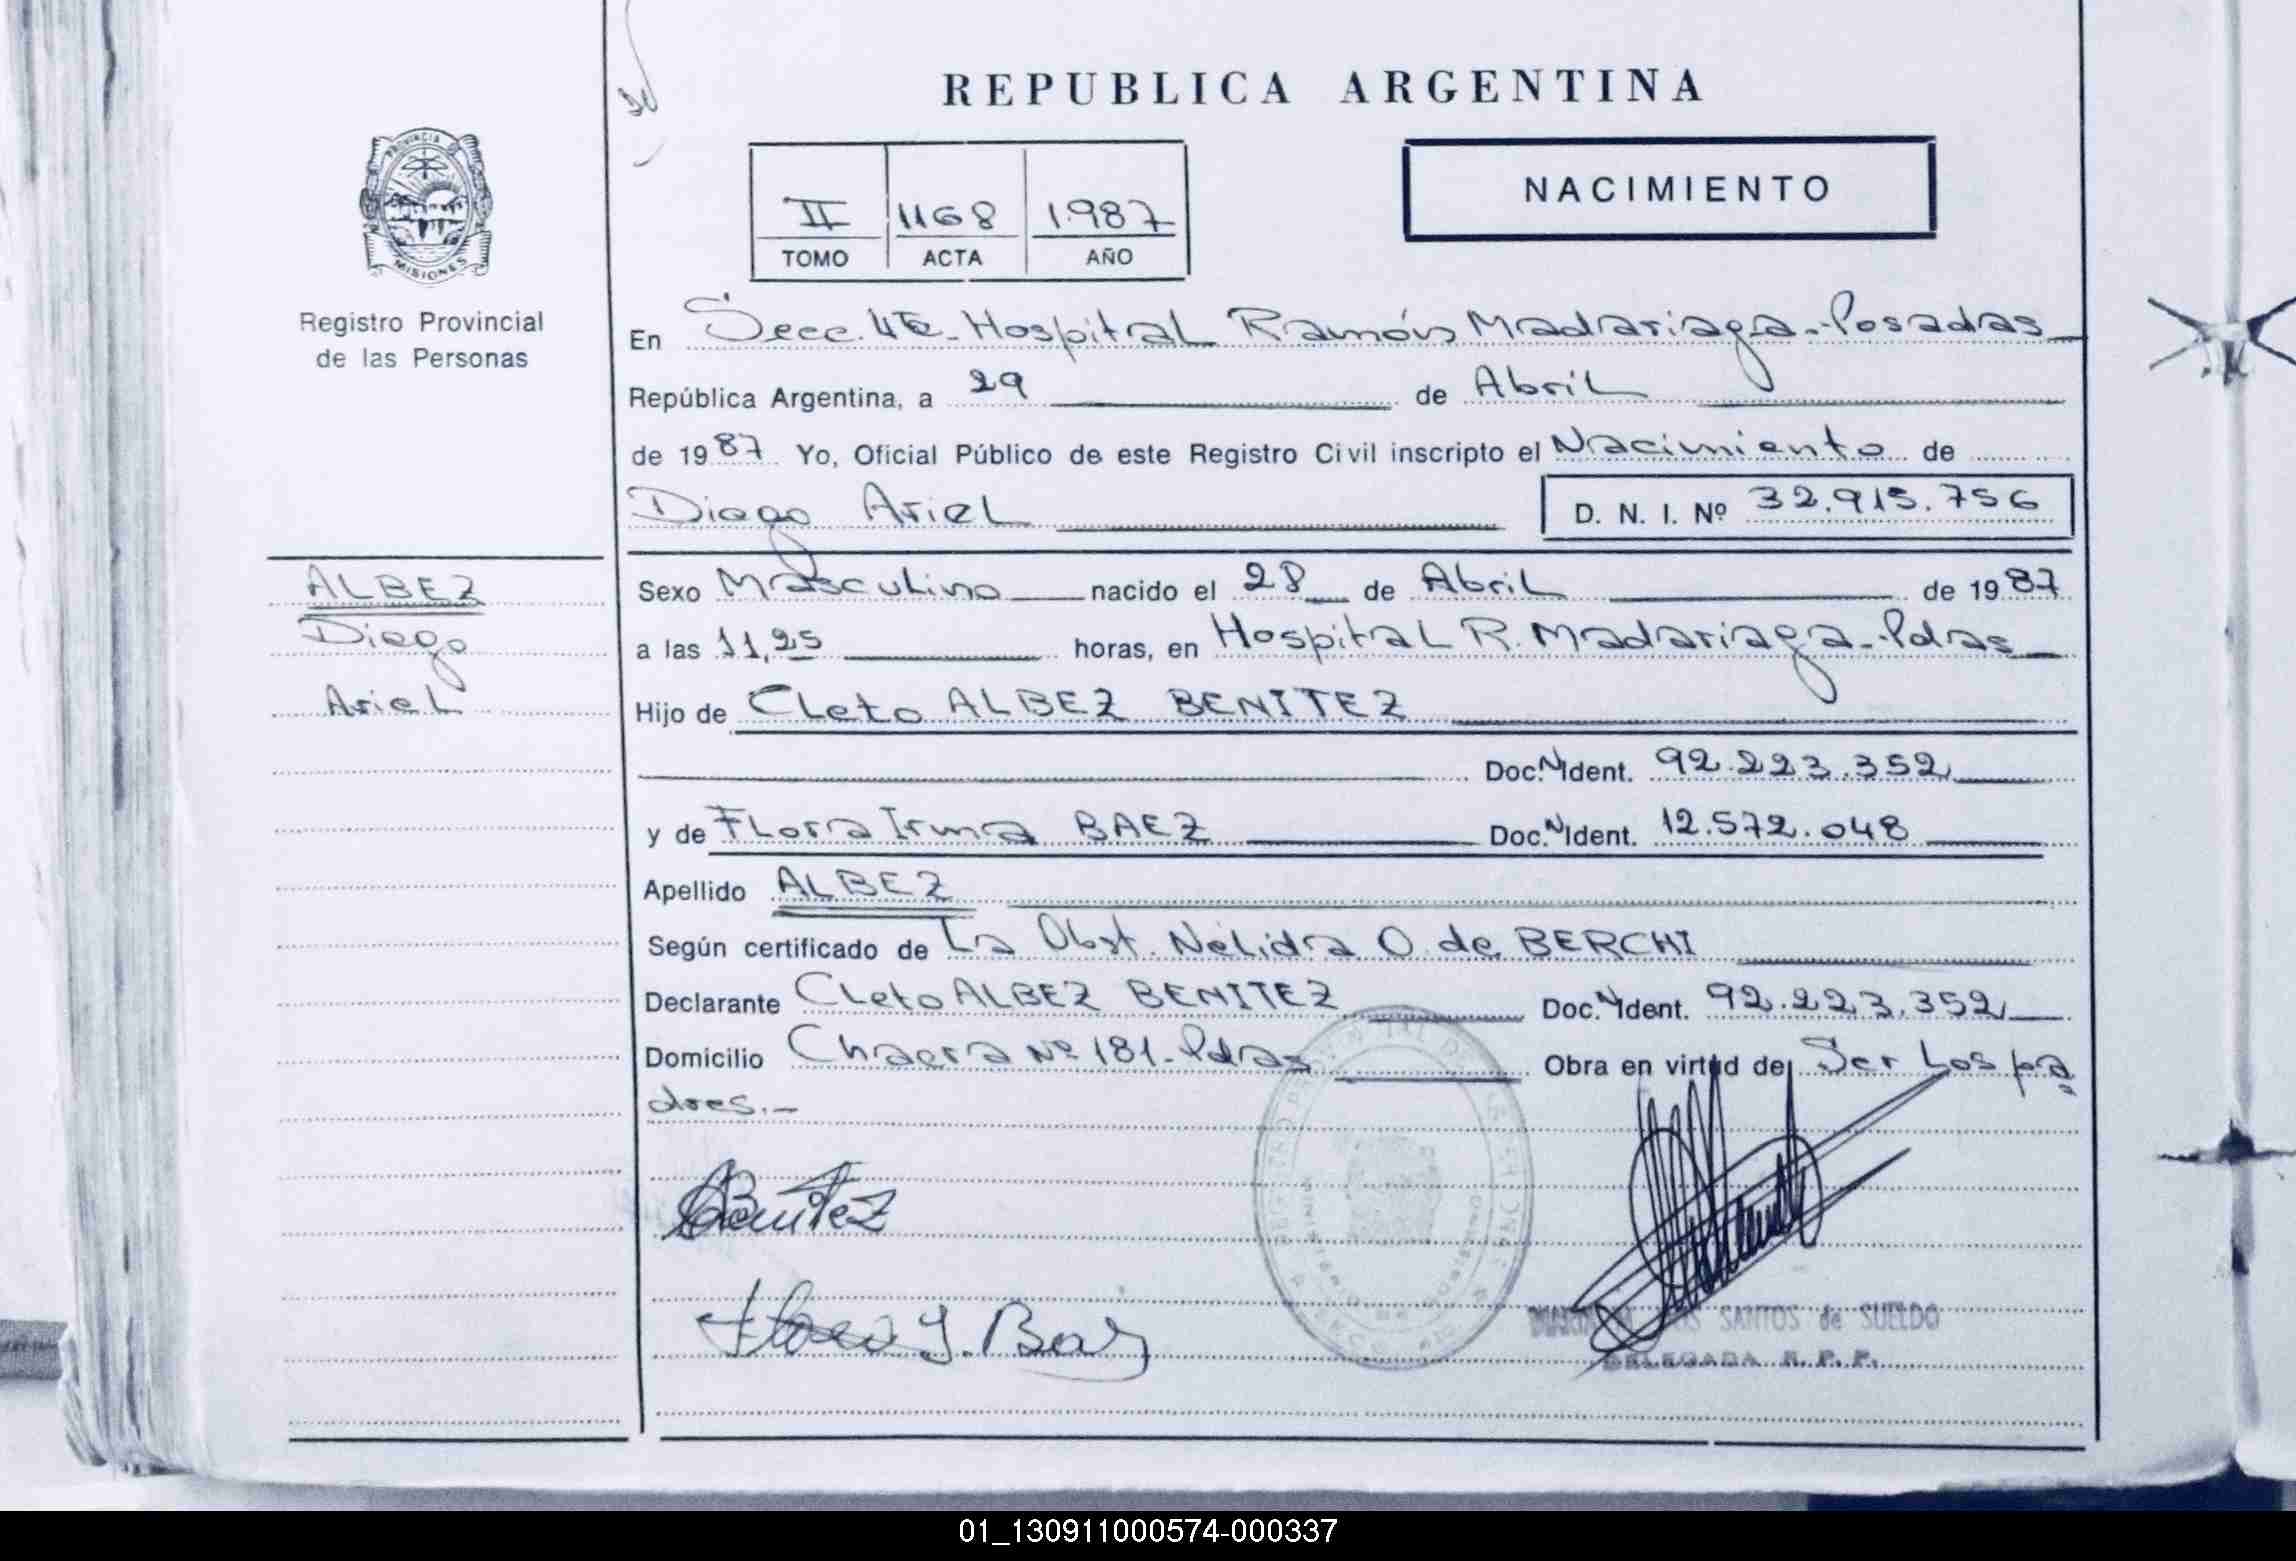 REPUBLICA ARGENTINA
PROVINCIA DE
MISIONES
Registro Provincial
de las Personas
II 1168 1987
TOMO ACTA AÑO
NACIMIENTO
En Secc. 4ta- Hospital Ramón Madariaga.-Posadas
República Argentina, a 29 de Abril
de 1987 Yo, Oficial Público de este Registro Civil inscripto el Nacimiento de
Diego Ariel D. N. I. Nº 32.915.756
ALBEZ
Diego
Ariel
Sexo Masculino nacido el 28 de Abril de 1987
a las 11,25 horas, en Hospital R. Madariaga-Pdas
Hijo de Cleto ALBEZ BENITEZ
Doc. N Ident. 92.223.352
y de Flora Irma BAEZ Doc. N Ident. 12.572.048
Apellido ALBEZ
Según certificado de La Obst. Nélida O. de BERCHI
Declarante Cleto ALBEZ BENITEZ Doc. N Ident. 92.223.352
Domicilio Chacra Nº 181- Pdas Obra en virtud de Ser Los pa
dres.-
Benitez
Flora I. Baez
SANTOS de SUELDO
DELEGADA R. P. P.
01_130911000574-000337